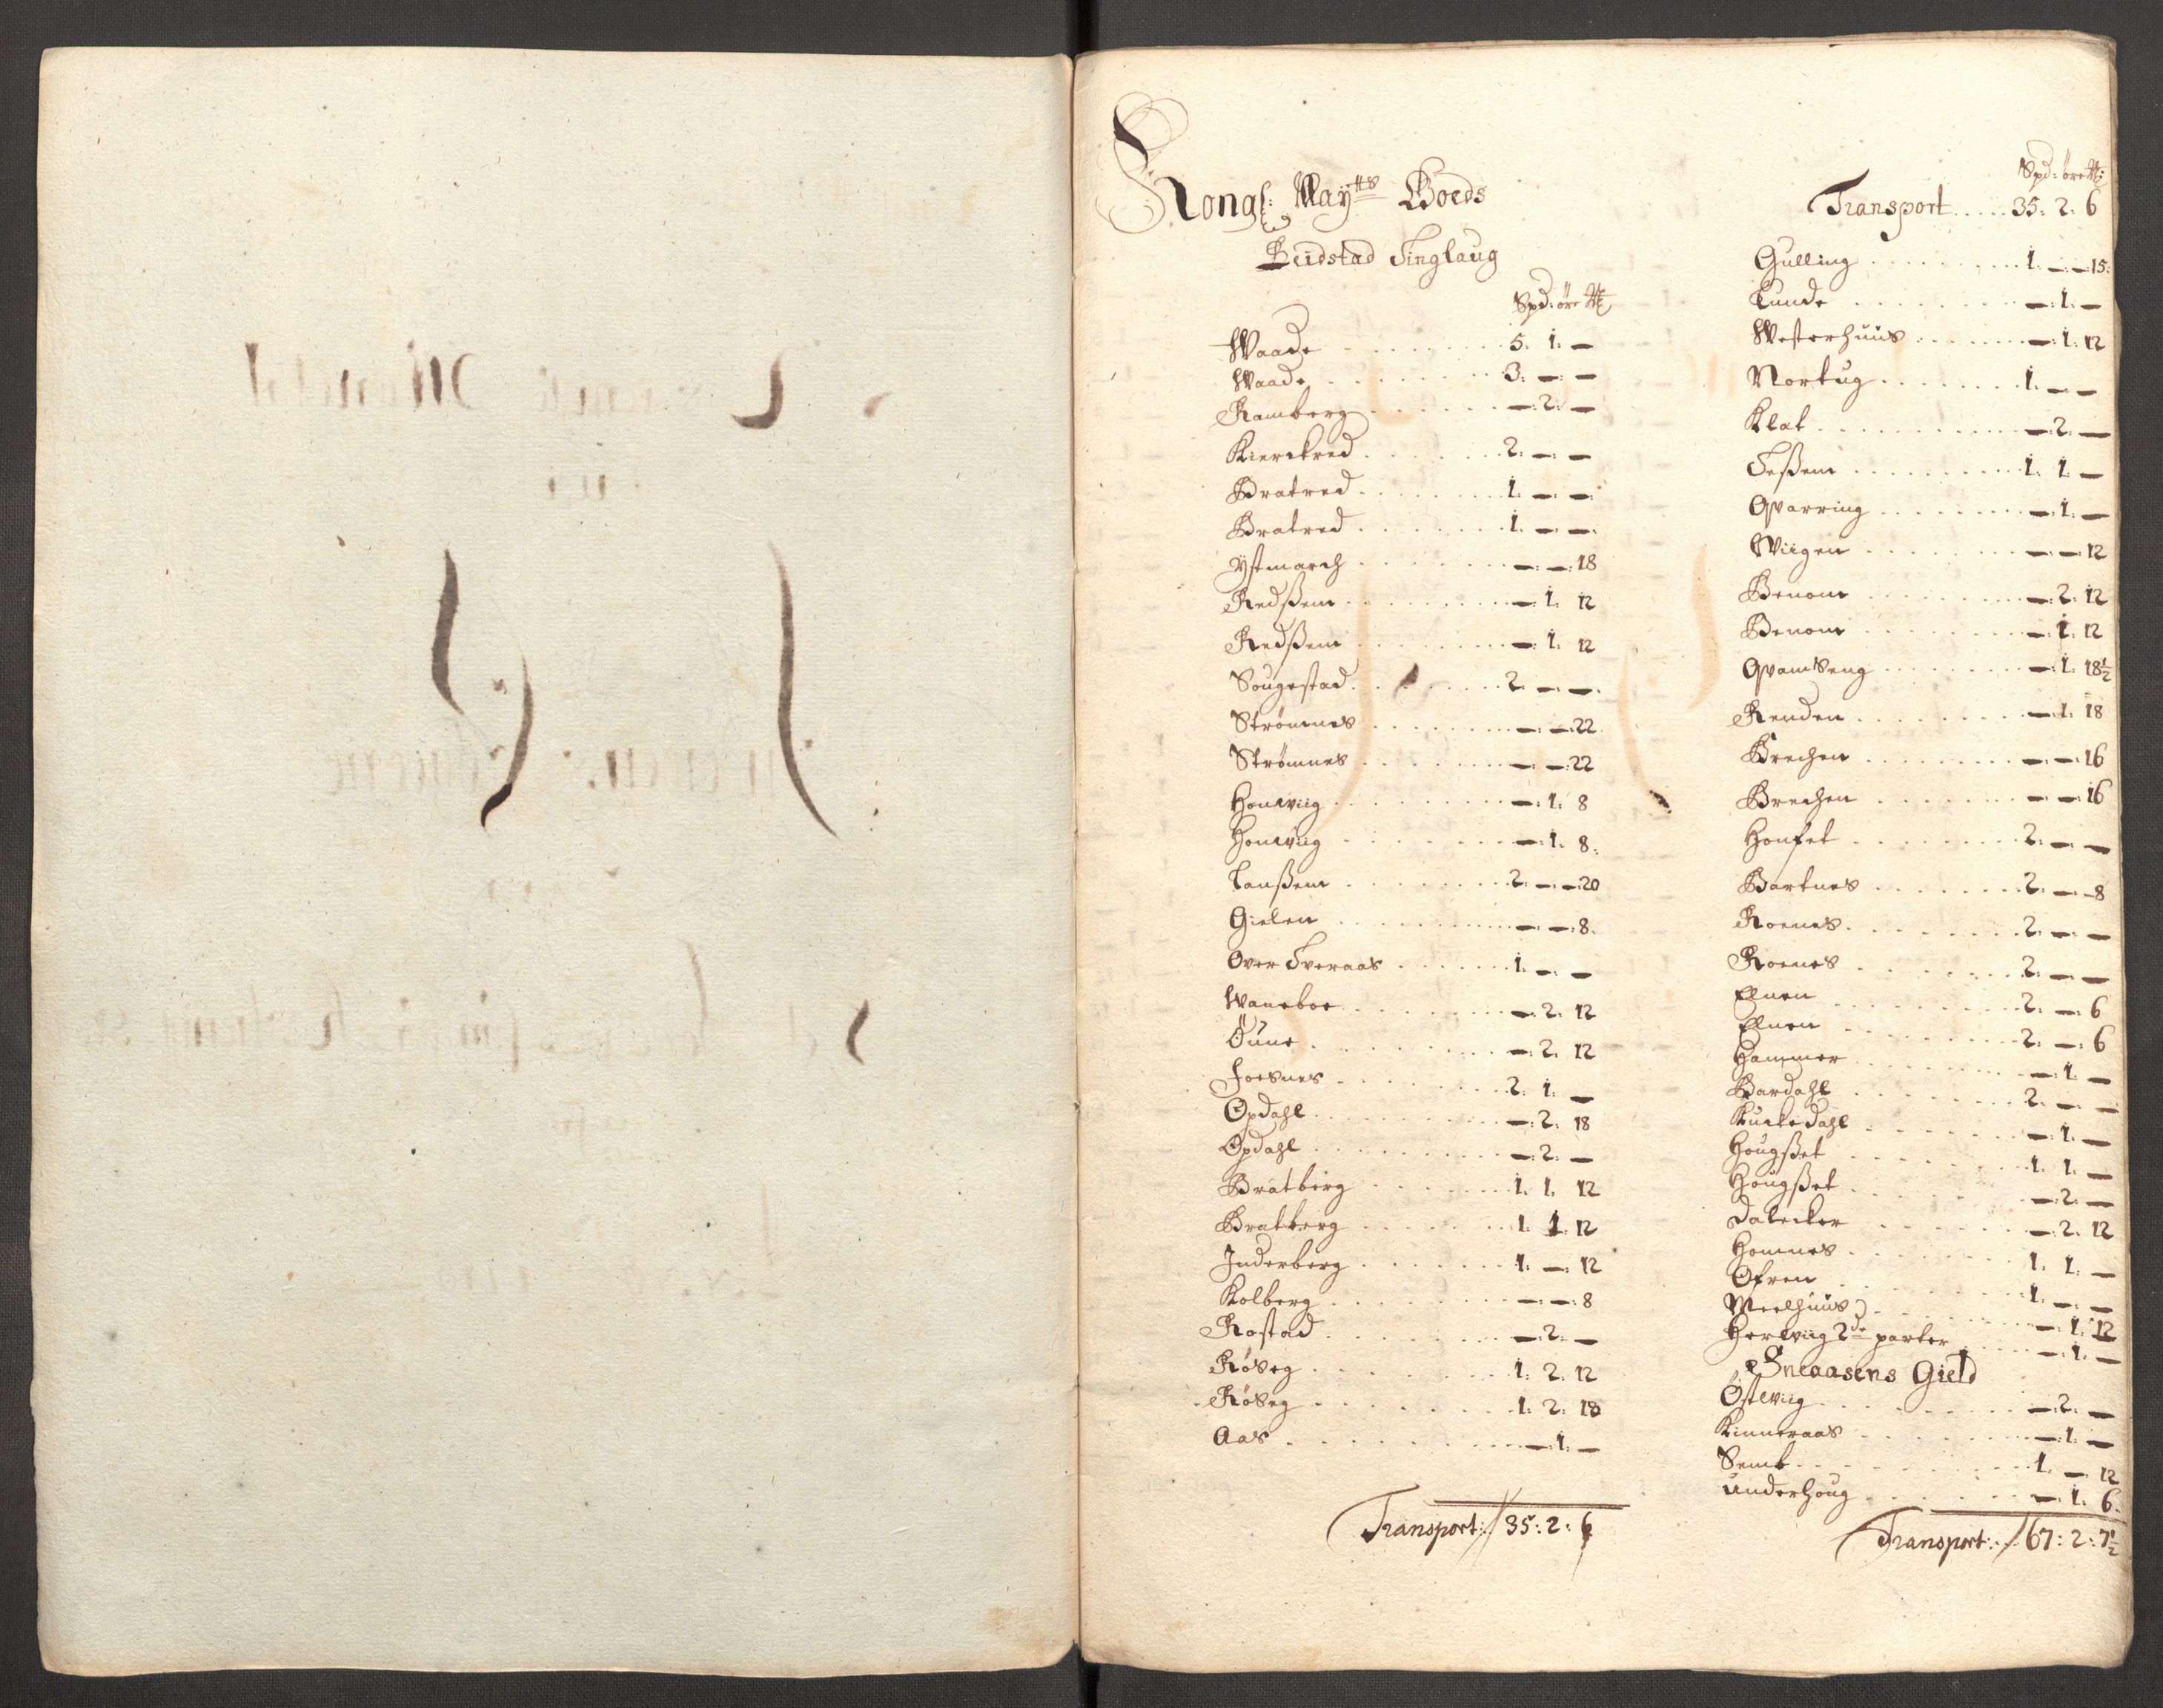 Kongl: May^tts Goeds
Beidstad Tinglaug
Spd: öre ₥
Waade . . . 5. 1. —
Waade . . . 3. — —
Ramberg . . . —. 2. —
Kierckred . . . 2. — —
Bratred . . . 1. — —
Bratred . . . 1. — —
Ystmarch . . . —. —. 18
Redßem . . . —. 1. 12
Redßem . . . —. 1. 12
Sougestad . . . 2. — —
Strömnes . . . —. —. 22
Strömnes . . . —. —. 22
Honwiig . . . —. 1. 8
Honwiig . . . —. 1. 8
Lanßem . . . 2. —. 20
Gielen . . . —. —. 8
Over Tveraas . . . 1. — —
Waneboe . . . —. 2. 12
Öune . . . —. 2. 12
Foesnes . . . 2. 1. —
Opdahl . . . —. 2. 18
Opdahl . . . —. 2. —
Bratberg . . . 1. 1. 12
Bratberg . . . 1. 1. 12
Inderberg . . . 1. —. 12
Kolberg . . . —. —. 8
Rostad . . . —. 2. —
Röseg . . . 1. 2. 12
Röseg . . . 1. 2. 18
Aas . . . —. 1. —
Transport: 35: 2: 6
Spd: öre ₥:
Transport . . . 35. 2. 6
Gulling . . . 1. —. 15
Lunde . . . —. 1. —
Westerhuus . . . —. 1. 12
Nortug . . . 1. — —
Klat . . . —. 2. —
Feßem . . . 1. 1. —
Qvarring . . . —. 1. —
Wiigen . . . —. —. 12
Benom . . . —. 2. 12
Benom . . . —. 1. 12
Qvamseng . . . —. 1. 18½
Renden . . . —. 1. 18
Brechen . . . —. —. 16
Brechen . . . —. —. 16
Honset . . . 2. — —
Bartnes . . . 2. —. 8
Roenes . . . 2. — —
Roenes . . . 2. — —
Elnen . . . 2. —. 6
Elnen . . . 2. —. 6
Hammer . . . —. 1. —
Bardahl . . . 2. — —
Kuckedahl . . . —. 1. —
Hougßet . . . 1. 1. —
Hougßet . . . —. 2. —
Dalecker . . . —. 2. 12
Homnes . . . 1. 1. —
Ofren . . . 1. — —
Meelhuus . . . —. 1. 12
Herwiig 2^de parter . . . —. 1. —
Sneaasens Gield
Östwiig . . . —. 2. —
Kinneraas . . . —. 1. —
Semb . . . 1. —. 12
Underhoug . . . —. 1. 6
Transport: 67: 2: 7½